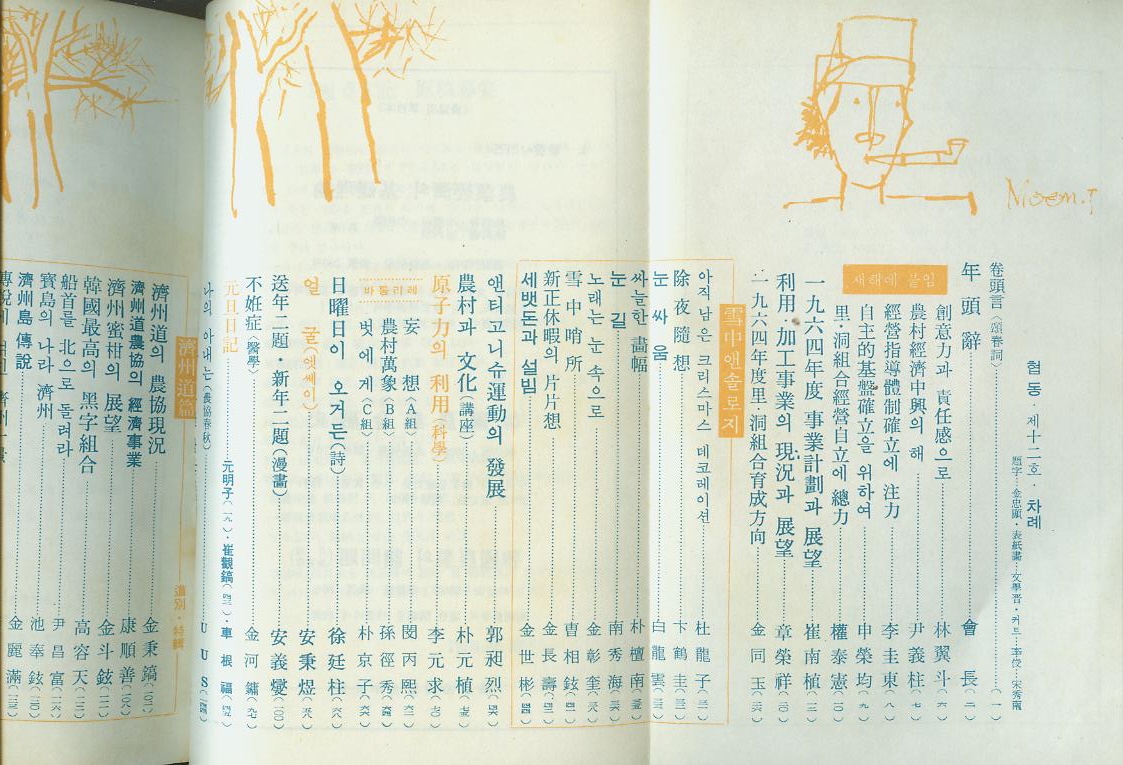 협동·제十二호·차례
題字…金忠顯·表紙畵…文學晋·커트…李俊…宋秀南
卷頭言〈頌春詞〉(一)
年頭辭 會長(二)
새해에 붙임
創意力과 責任感으로 林翼斗(六)
農村經濟中興의 해 尹義柱(七)
經營指導體制確立에 注力 李圭東(八)
自主的基盤確立을 위하여 申榮均(九)
里·洞組合經營自立에 總力 權泰憲(一〇)
一九六四年度 事業計劃과 展望 崔南植
利用·加工事業의 現況과 展望 章榮祥
一九六四年度里·洞組合育成方向 金同玉
雪中앤솔로지
아직 남은 크리스마스 데코레이션 杜龍子
除夜隨想 卞鶴圭
눈싸움 白龍雲
싸늘한 畵幅 朴檀南
눈길 南秀海
노래는 눈 속으로 金彰奎
雪中哨所 曺相鉉
新正休暇의 片片想 金長壽
세뱃돈과 설빔 金世彬
앤티고니슈運動의 發展 郭昶烈
農村과 文化(講座) 朴元植
原子力의 利用(科學) 李元求
바통리레
妄想〈A組〉 閔丙熙
農村萬象〈B組〉 孫徑秀
벗에게〈C組〉 朴京子
日曜日이 오거든(詩) 徐廷柱
얼굴(엣쎄이) 安秉煜
送年二題·新年二題(漫畵) 安義燮(一〇〇)
不妊症(醫學) 金河鏞
元旦日記 元明子·崔觀鎬·車根福
나의 아내는(農協春秋) UUS
濟州道篇
道別·特輯
濟州道의 農協現況 金秉鎬
濟州道農協의 經濟事業 康順善
濟州蜜柑의 展望 金斗鉉
韓國最高의 黑字組合 高容天
船首를 北으로 돌려라 尹昌富
寶島의 나라 濟州 池奉鉉
濟州島傳說 金麗滿
Moon.T